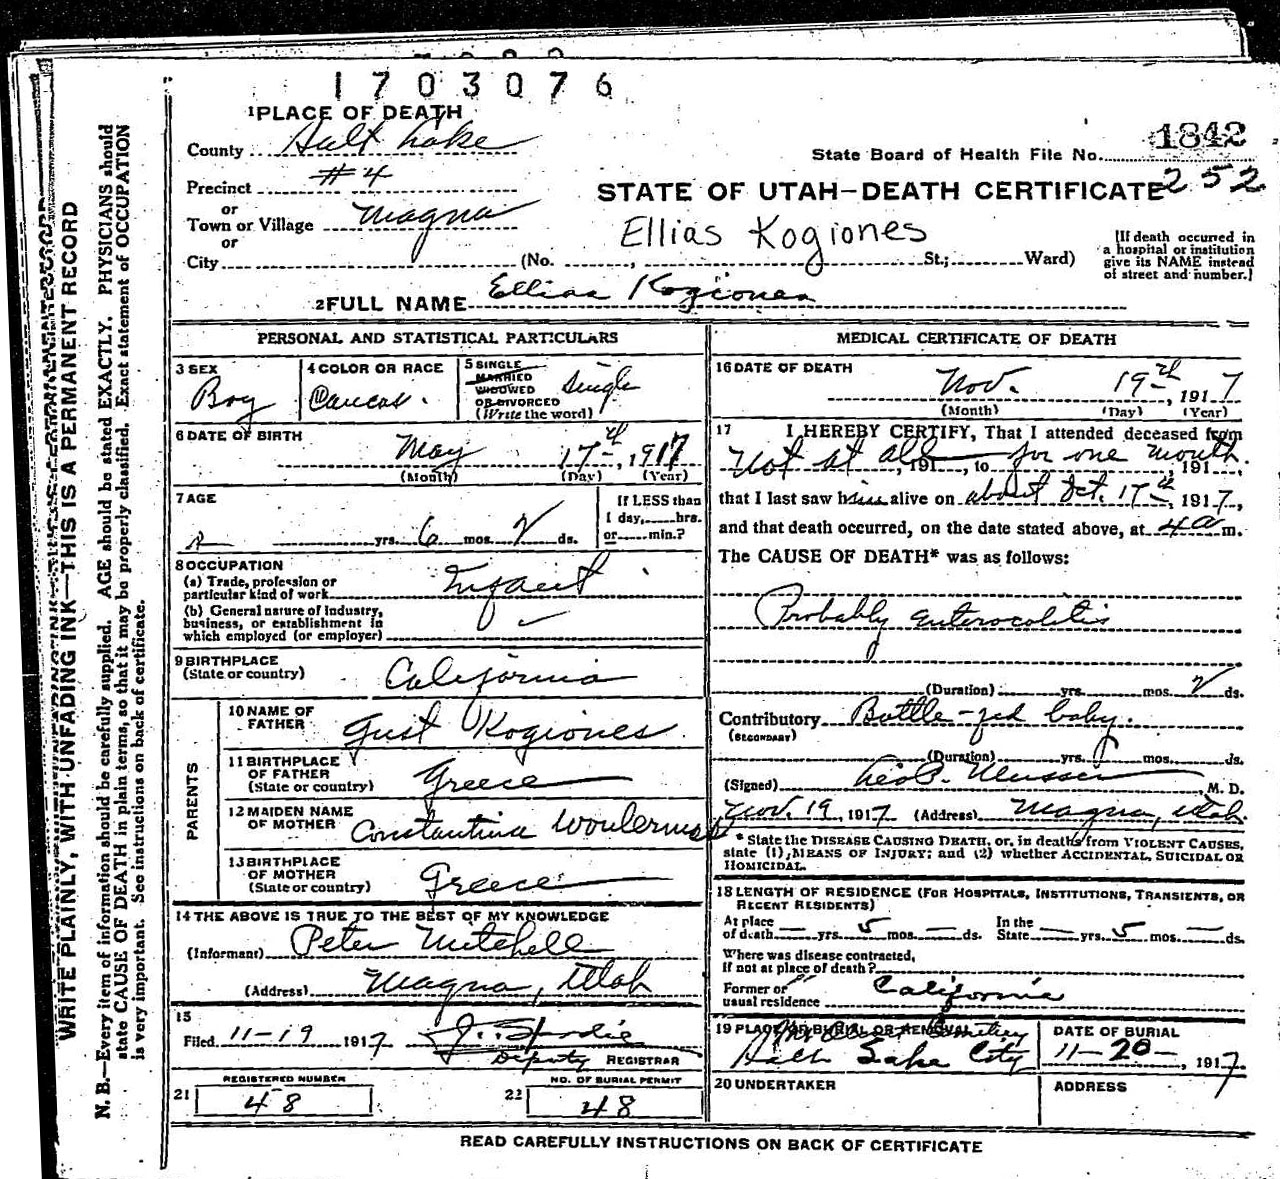 1703076
1 PLACE OF DEATH
County Salt Lake
State Board of Health File No. 1842
Precinct #4
STATE OF UTAH—DEATH CERTIFICATE 252
or
Town or Village Magna
Ellias Kogiones
or
City (No. , St.; Ward)
(If death occurred in
a hospital or institution
give its NAME instead
of street and number.)
2 FULL NAME Ellias Kogiones
PERSONAL AND STATISTICAL PARTICULARS
3 SEX
Boy
4 COLOR OR RACE
Caucas.
5 SINGLE
MARRIED
WIDOWED
OR DIVORCED
(Write the word)
Single
6 DATE OF BIRTH
May 17th, 1917
(Month) (Day) (Year)
7 AGE
yrs. 6 mos. 2 ds.
If LESS than
1 day, hrs.
or min.?
8 OCCUPATION
(a) Trade, profession or
particular kind of work Infant
(b) General nature of Industry,
business, or establishment in
which employed (or employer)
9 BIRTHPLACE
(State or country) California
PARENTS
10 NAME OF
FATHER Gust Kogiones
11 BIRTHPLACE
OF FATHER
(State or country) Greece
12 MAIDEN NAME
OF MOTHER Constantina
13 BIRTHPLACE
OF MOTHER
(State or country) Greece
14 THE ABOVE IS TRUE TO THE BEST OF MY KNOWLEDGE
(Informant) Peter Mitchell
(Address) Magna, Utah
15
Filed 11-19 1917
Deputy REGISTRAR
REGISTERED NUMBER
21 48
NO. OF BURIAL PERMIT
22 48
MEDICAL CERTIFICATE OF DEATH
16 DATE OF DEATH
Nov. 19th, 1917
(Month) (Day) (Year)
17 I HEREBY CERTIFY, That I attended deceased from
Not at all, 191 , to for one month, 191 ,
that I last saw him alive on about Oct. 17th, 1917,
and that death occurred, on the date stated above, at 4 a m.
The CAUSE OF DEATH* was as follows:
Probably enterocolitis
(Duration) yrs. mos. 2 ds.
Contributory Bottle-fed baby.
(SECONDARY)
(Duration) yrs. mos. ds.
(Signed) M. D.
Nov. 19, 1917 (Address) Magna, Utah.
* State the DISEASE CAUSING DEATH, or, in deaths from VIOLENT CAUSES,
state (1), MEANS OF INJURY; and (2) whether ACCIDENTAL, SUICIDAL OR
HOMICIDAL.
18 LENGTH OF RESIDENCE (FOR HOSPITALS, INSTITUTIONS, TRANSIENTS, OR
RECENT RESIDENTS)
At place
of death — yrs. 5 mos. — ds.
In the
State — yrs. 5 mos. — ds.
Where was disease contracted,
if not at place of death?
Former or
usual residence California
19 PLACE OF BURIAL OR REMOVAL
Salt Lake City
DATE OF BURIAL
11-20-, 1917
20 UNDERTAKER
ADDRESS
READ CAREFULLY INSTRUCTIONS ON BACK OF CERTIFICATE
WRITE PLAINLY, WITH UNFADING INK—THIS IS A PERMANENT RECORD
N. B.—Every item of information should be carefully supplied. AGE should be stated EXACTLY. PHYSICIANS should
state CAUSE OF DEATH in plain terms, so that it may be properly classified. Exact statement of OCCUPATION
is very important. See instructions on back of certificate.